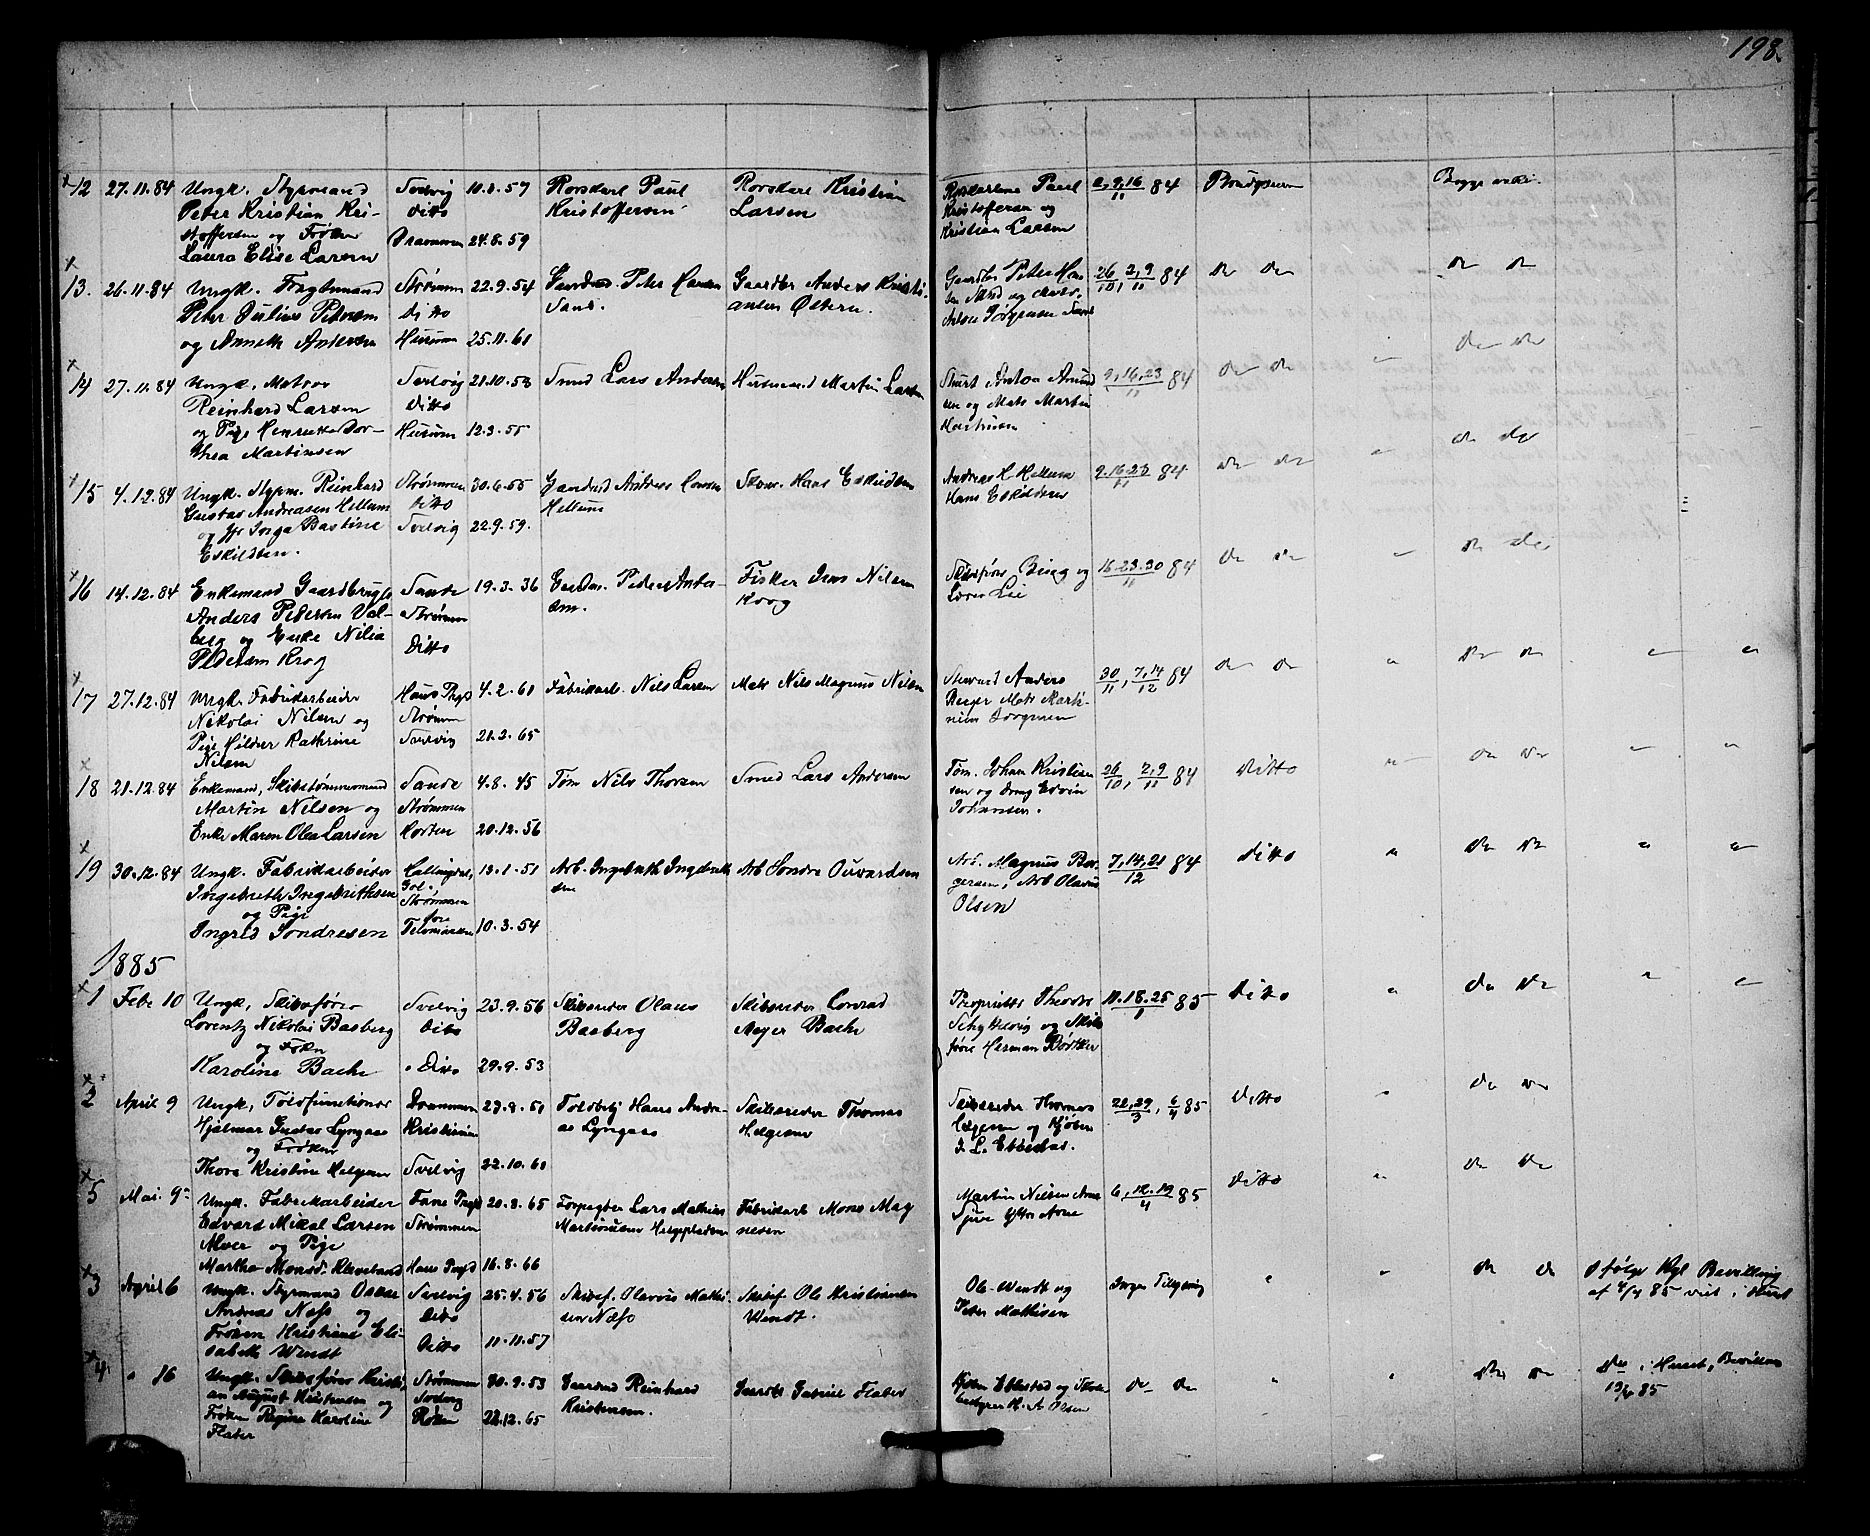 198.
12 27.11.84 Ungk. Styrmand Svelvig 10.2.57 Rorskarl Paul Rorskarl Kristian Rorskarlene Paul 2,9,16/11 84 Brudgommen Begge vacc.
Peter Kristian Kri- Ditto Kristoffersen Larsen Kristoffersen og
stoffersen og Frøken Drammen 24.8.59 Kristian Larsen
Laura Elise Larsen
13. 26.11.84 Ungk. Fragtemand Strømmen 22.9.54 Gaardmd Peter Hansen Gaardbr Anders Kristi- Gaardbr Peter Han 26/10, 2,9/11 84 do do do do
Peter Julius Petersen ditto Sand. ansen Østern.
og Annette Andersen Hurum 25.11.61 Anton Jørgensen Sand
14 27.11.84 Ungk. Matros Svelvig 21.10.53 Smed Lars Andersen Husmand Martin Larsen Stuert Anton Amund 9,16,23/11 84 do do " do do
Reinhard Larsen Ditto sen og Mats Martin
og Pige Henriette Dor- Hurum 12.3.55
thea Martinsen
15 4.12.84 Ungk. Styrm. Reinhard Strømmen 30.6.55 Gaardmd Andreas Hansen Skom. Hans Eskildsen Andreas H Hellum 9.16.23/11 84 do do " do do
Gustav Andreasen Hellum Ditto Hellum Hans Eskildsen
og Jfr Inga Bastine Svelvig 22.9.59.
Eskildsen.
16 14.12.84 Enkemand Gaardbruger Sande 19.3.36 Gaardm. Peder Anders- Fisker Jens Nilsen Skibsfører Bing og 16.23.30/11 84 do do " do do
Anders Pedersen Val- Strømmen sen. Krog Lie
berg og Enke Nilia Ditto
Pedersen Krog
17 27.12.84 Ungk. Fabrikarbeider Haus Prgj 4.2.61 Fabrikarb. Nils Larsen Mats Nils Magnus Nilsen Stuert Anders 30/11, 7,14/12 84 do do " do do " "
Nikolai Nilsen og Strømmen Berger Mats Marti-
Pige Hilder Kathrine Svelvig 21.2.65 nius Jørgensen
Nilsen
18 21.12.84 Enkemand, Skibstømmermand Sande 4.8.45 Tøm Nils Thorsen Smed Lars Andersen Tøm. Johan Kristian 26/10, 2,9/11 84 Ditto " do do " "
Martin Nilsen og Strømmen sen og Edvin
Enke Maren Olea Larsen Horten 20.12.56 Johansen.
19 30.12.84 Ungk. Fabrikarbeider Hallingdal, 13.1.51 Arb. Ingebreth Ingebreth Arb Sondre Ouvardsen Arb. Magnus Bør- 7,14,21/12 84 Ditto " do do " "
Ingebreth Ingebrithsen Gol., sen gersen, Arb Olavus
og Pige Strømmen Olsen
Ingrid Sondresen Telemarken 10.3.54
1885
1 Feb 10 Ungk, Skibsfører Svelvig 23.9.56 Skibsreder Olaus Skibsreder Conrad Proprietær Theodor 11.18.25/1 85 Ditto " do do " "
Lorentz Nikolai Basberg Ditto Basberg Meyer Bache Schytterig og Skibs
og Frøken fører Herman Bødtker
Karoline Bache " Ditto 29.9.53
2 April 9 Ungk, Toldfunctionær Drammen 23.8.51 Toldbetj Hans Andre- Skibsreder Thomas Skibsreder Thomas 22,29/3, 6/4 85 Ditto " do do
Hjalmar Gustav Lyngaas Kristiania as Lyngaas Helgesen Helgesen og Kjøbm
og Frøken J. L. Ebbestad.
Thora Kristine Helgesen Svelvig 22.10.61
5 Mai 9 Ungk. Fabrikarbeider Fane Prgj 20.8.65 Forpagter Lars Mathias Fabrikarb Mons Mag Martin Nielsen Arne 6,12.19/4 85 Ditto " do do
Edvard Mikal Larsen Strømmen Martinusen Helgepladsen nesen
Moer og Pige
Martha Monsd. Kleveland Haus Prgjd 16.8.66
3 April 6 Ungk. Styrmand Oscar Svelvig 25.4.56 Skibsf. Olavus Mathi- Skibsf Ole Kristiansen Ole Wendt og Ingen Tillysning " " do do Ifølge Kgl Bevilling
Andreas Næss og Ditto sen Næss Wendt. Peter Mathisen af 4/4 85 viet i Huset
Frøken Kristiane Eli- Ditto 11.11.57
sabeth Wendt
4 " 16 Ungk. Skibsfører Kristi- Strømmen 30.9.53 Gaardmd Reinhard Gaardb Gabriel Flater Kjøbm Ebbestad og Skole do do " " do do Do i Huset, Bevilling
an August Kristensen og Svelvig Kristensen. A Olsen 13/4 85
Frøken Regine Karoline Røken 22.12.65
Flater